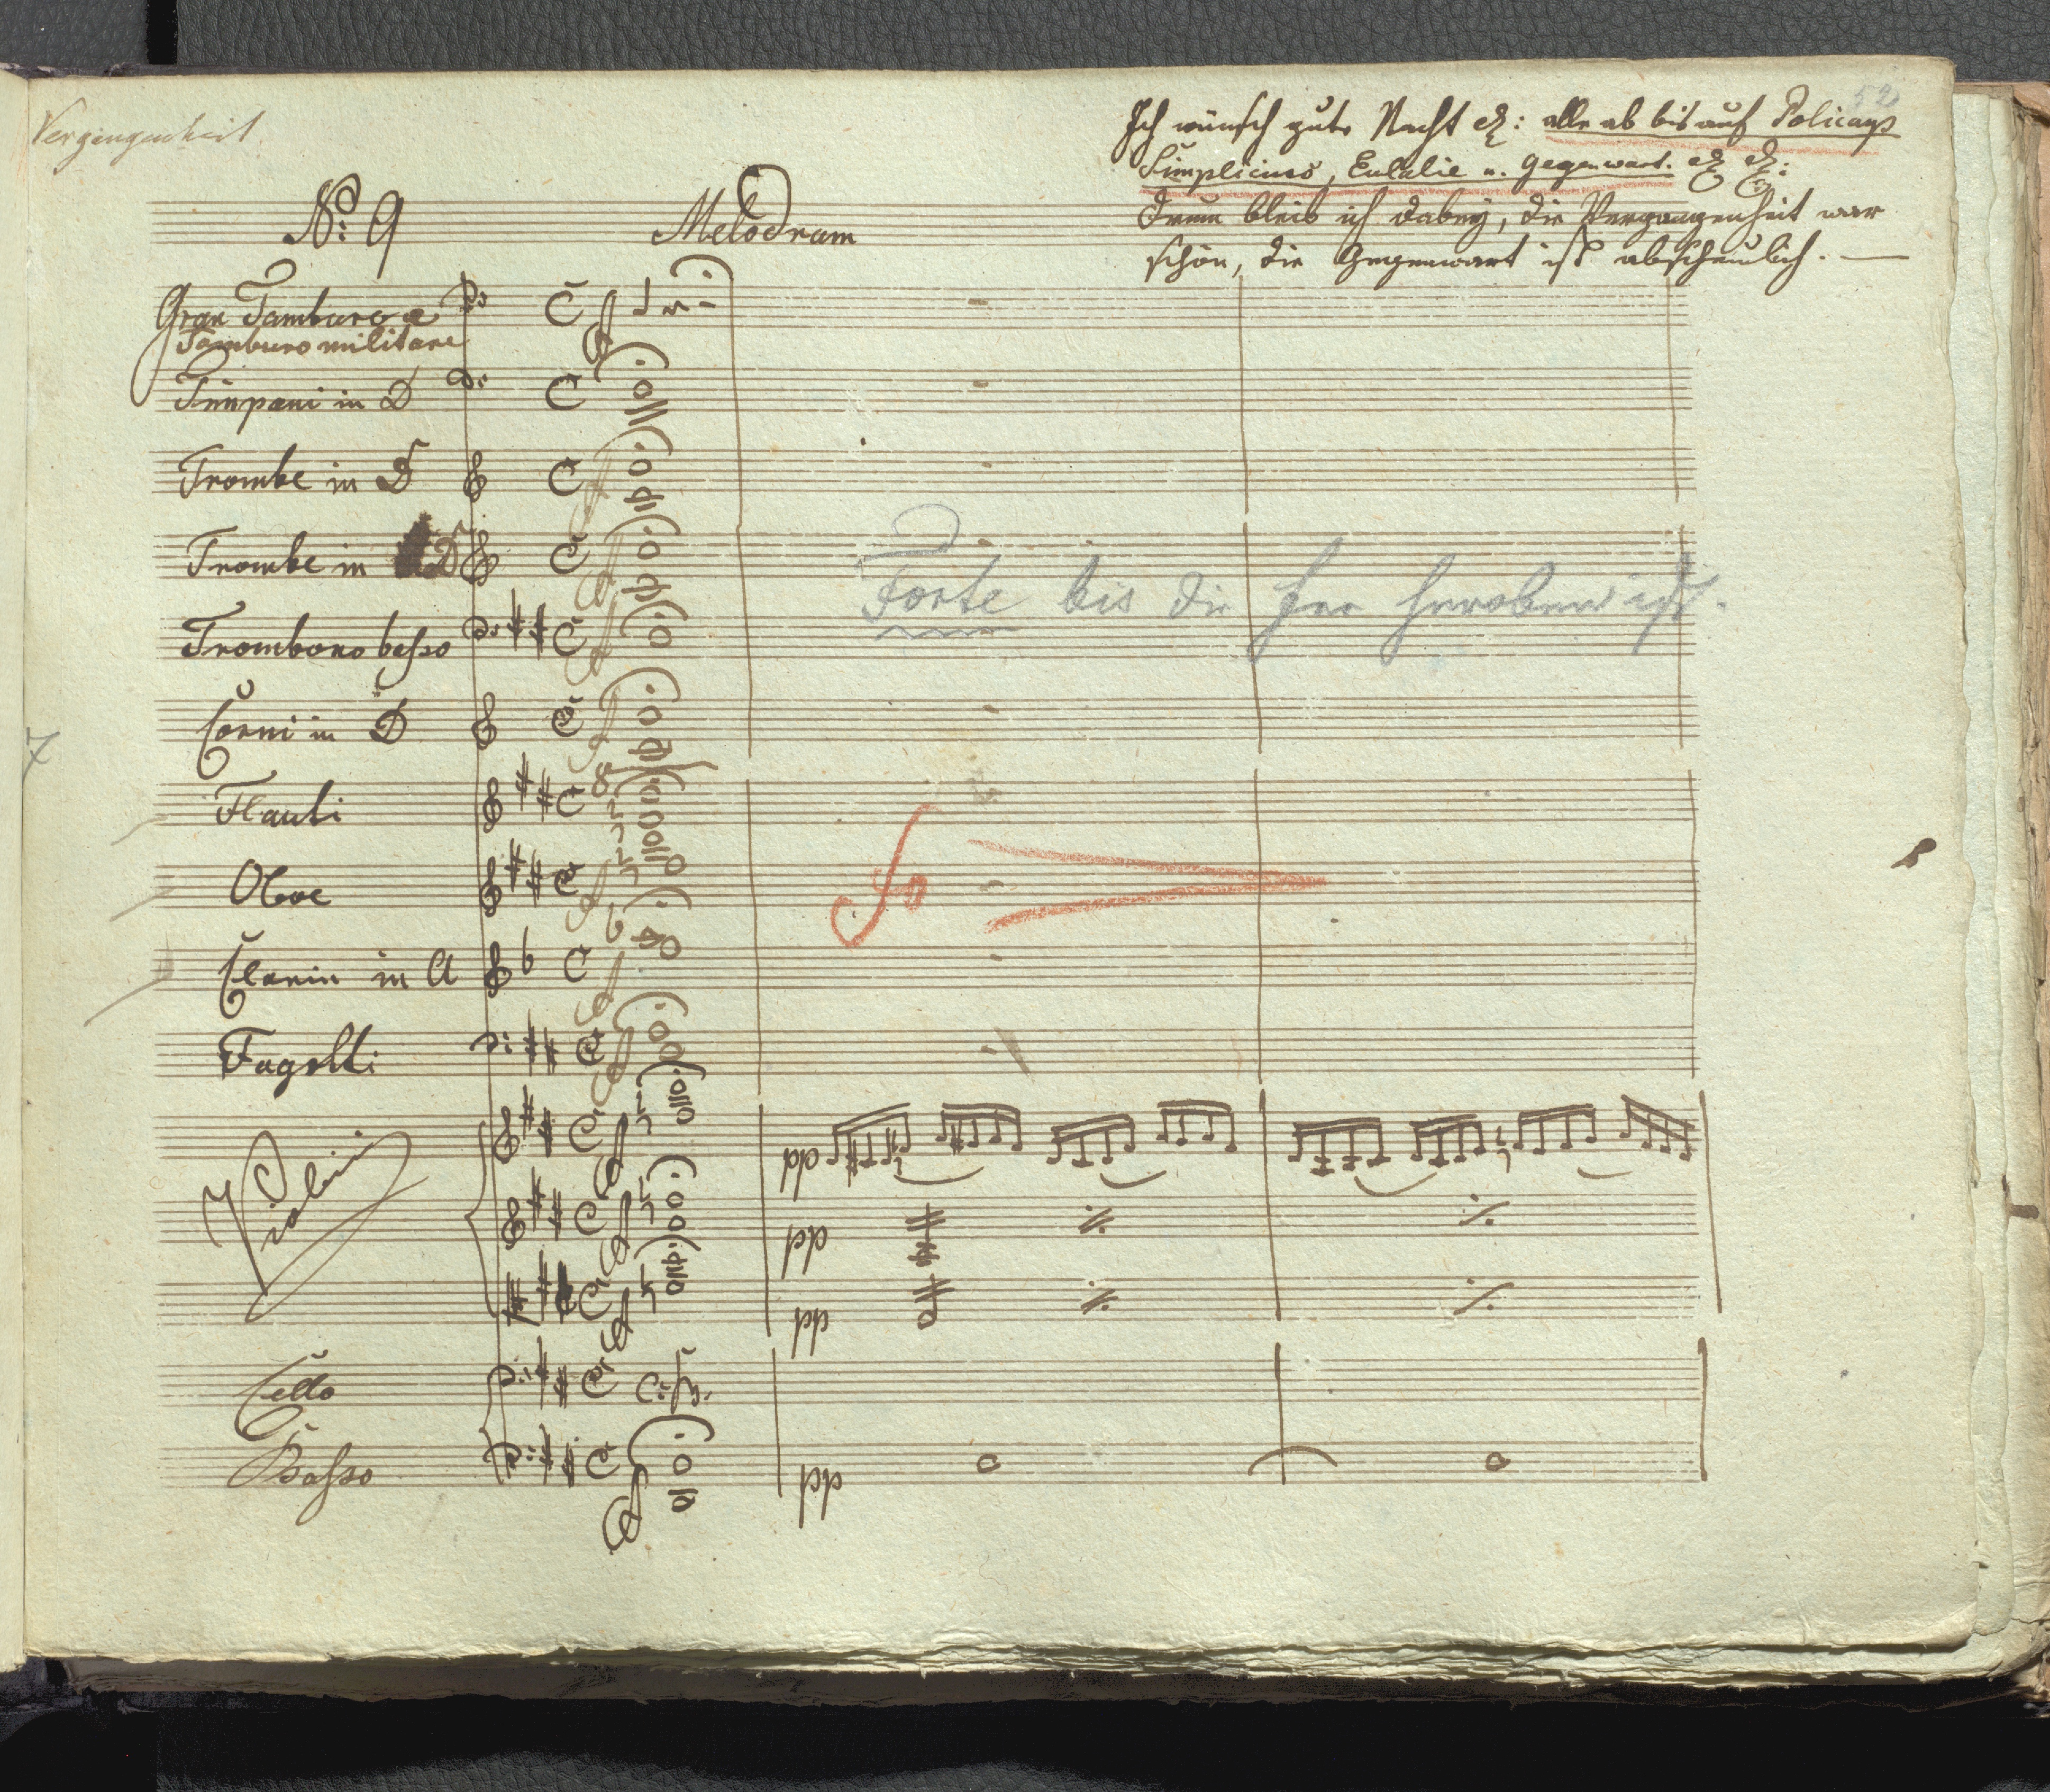 52
Vergangenheit
Ich wünsch gute Nacht etz: alle ab bis auf Policarp
Simplicius, Eulalie u. Gegenwart. etz etz:
Drum bleib ich dabey, die Vergangenheit war
schön, die Gegenwart ist abscheulich. —
No: 9 Melodram
Gran Tamburo e
Tamburo militare
Timpani in D
Trombe in D
Trombe in D
Forte bis die Fee heroben ist.
Trombono basso
Corni in D
7
Flauti
8
Oboe
fp
Clarin in A
Fagotti
Violini
pp
pp
pp
Cello
Basso
pp